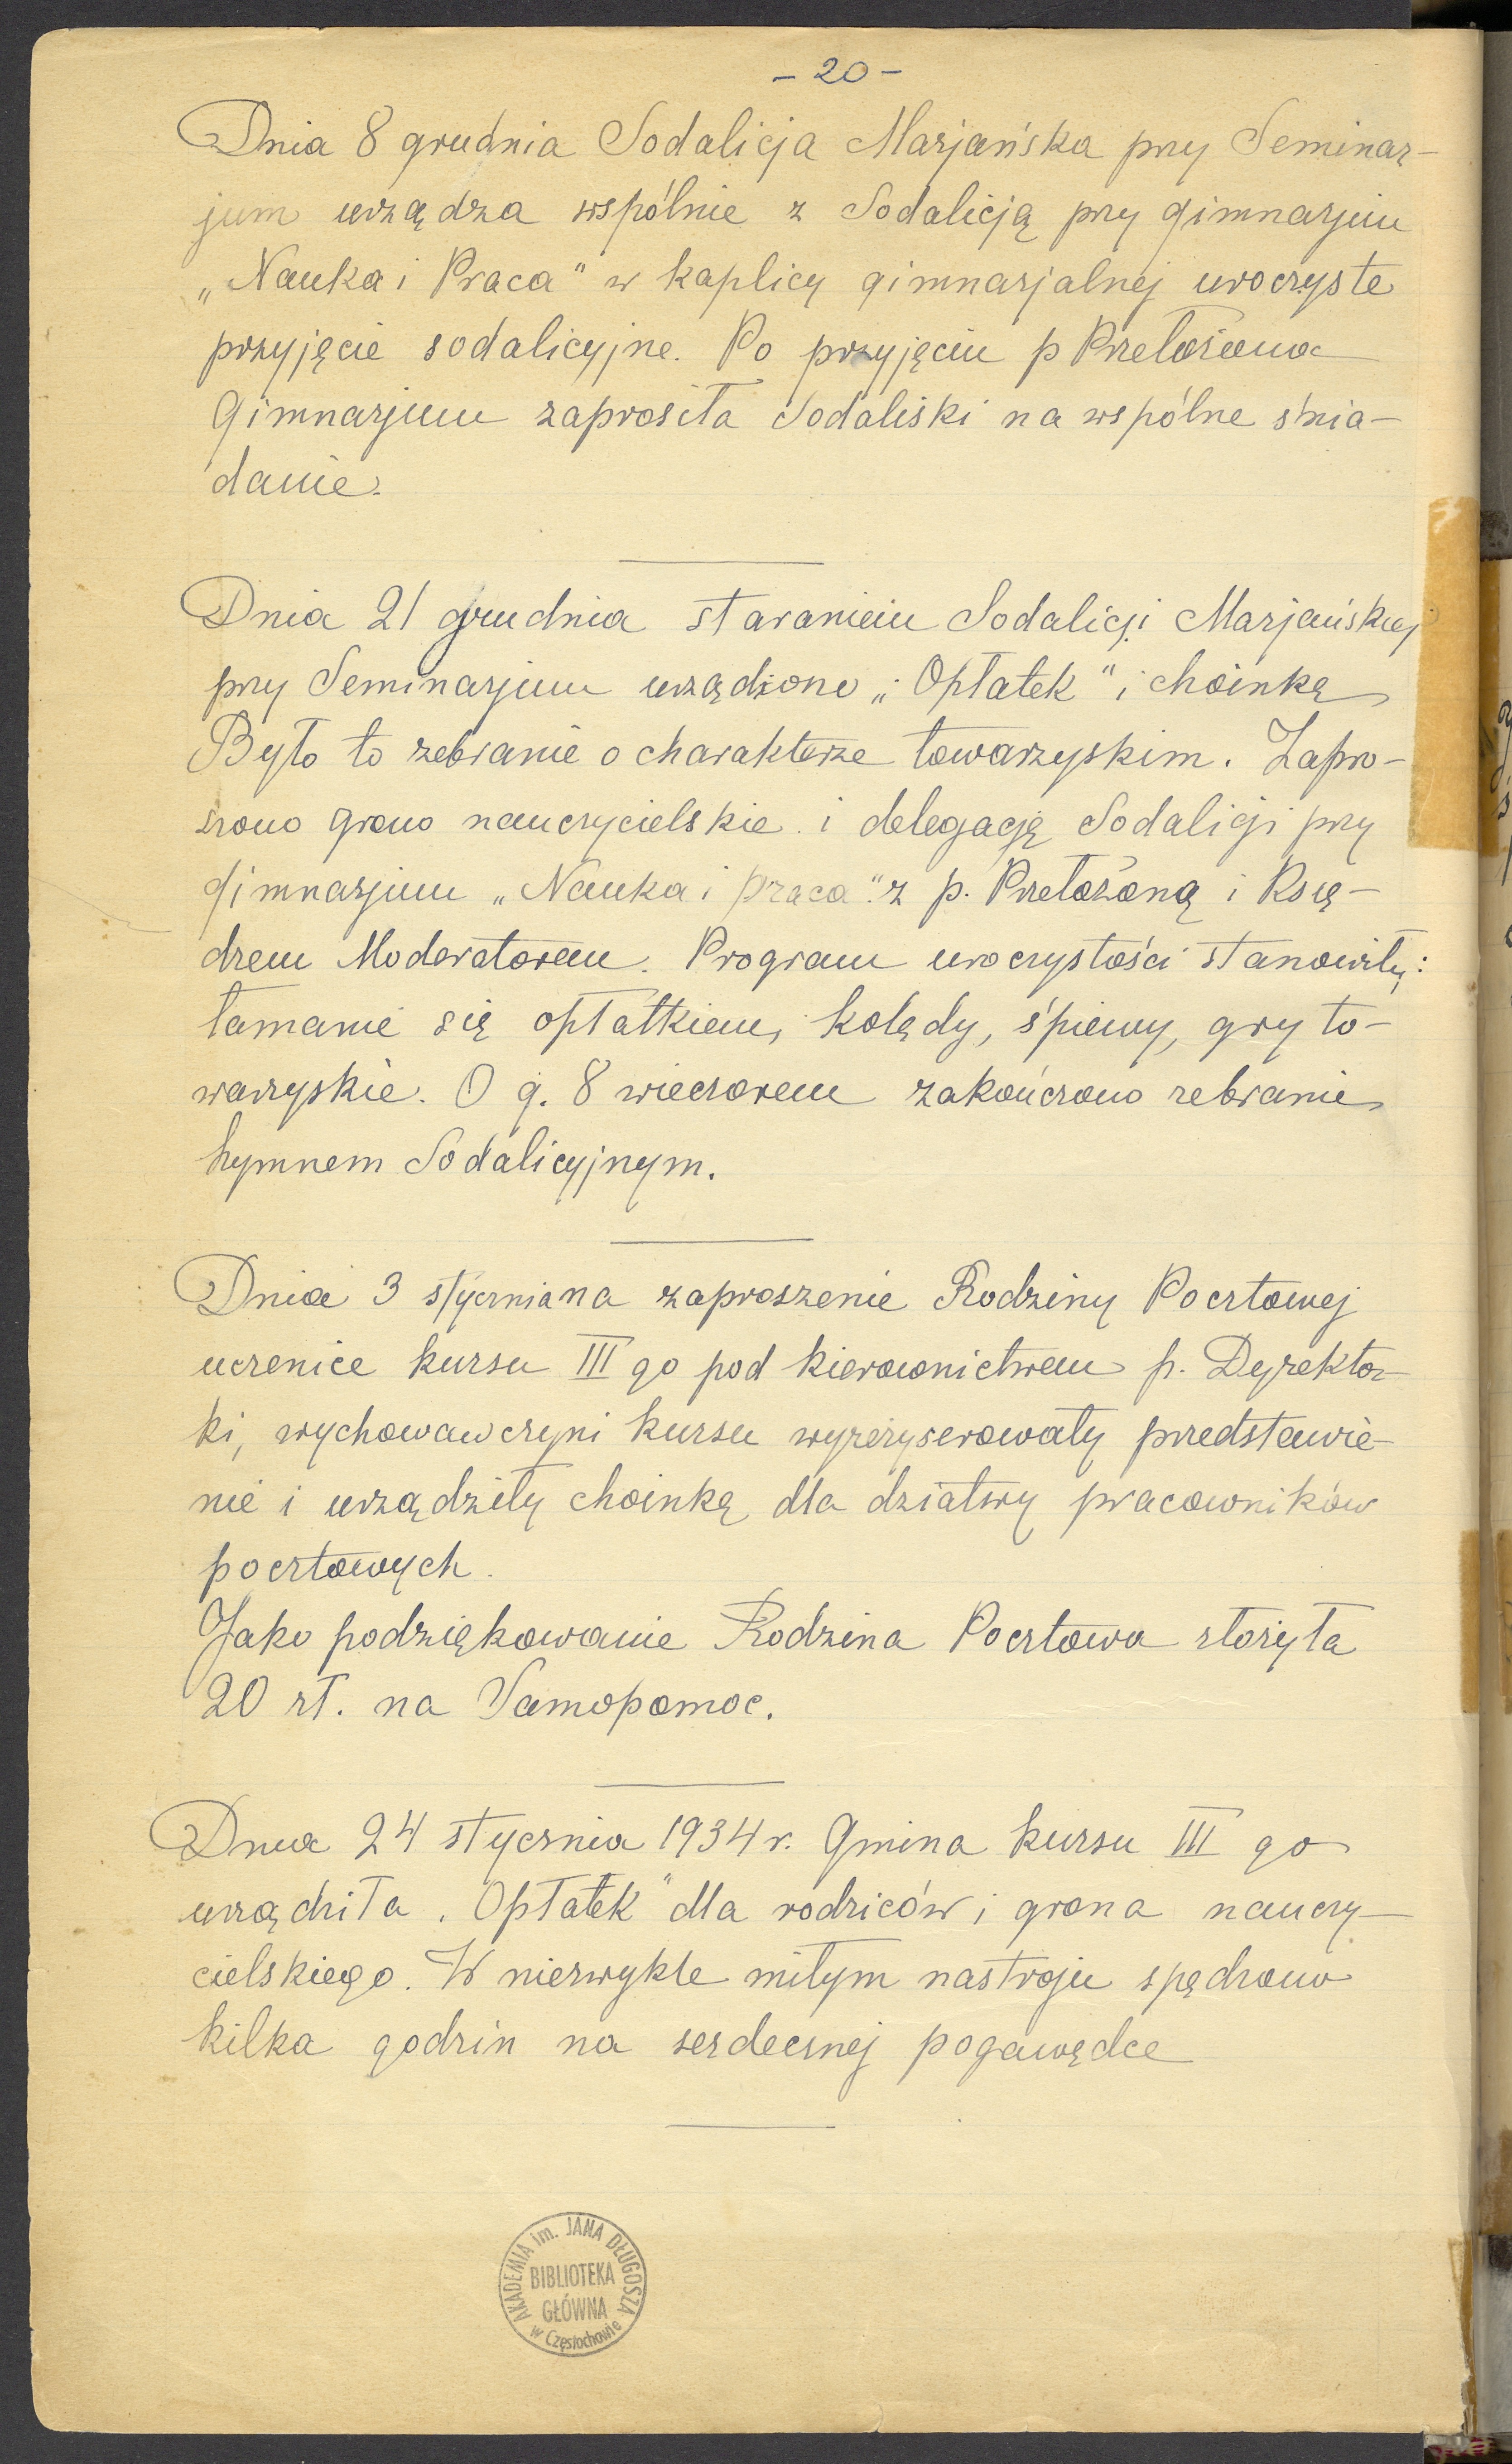 - 20 -
Dnia 8 grudnia Sodalicja Marjańska przy Seminar-
jum urządza wspólnie z Sodalicją przy gimnazjum
„Nauka i Praca" w kaplicy gimnazjalnej uroczyste
przyjęcie sodalicyjne. Po przyjęciu p Przełożona
Gimnazjum zaprosiła Sodaliski na wspólne śnia-
danie.
Dnia 21 grudnia staraniem Sodalicji Marjańskiej
przy Seminarjum urządzono „Opłatek" i choinkę
Było to zebranie o charakterze towarzyskim. Zapro-
szono grono nauczycielskie i delegację Sodalicji przy
gimnazjum „Nauka i praca" z p. Przełożoną i Księ-
dzem Moderatorem. Program uroczystości stanowiły:
łamanie się opłatkiem, kolędy, śpiewy, gry to-
warzyskie. O g. 8 wieczorem zakończono zebranie
hymnem Sodalicyjnym.
Dnia 3 stycznia na zaproszenie Rodziny Pocztowej
uczenice kursu III go pod kierownictwem p. Dyrektor-
ki, wychowawczyni kursu wyreżyserowały przedstawie-
nie i urządziły choinkę dla dziatwy pracowników
pocztowych.
Jako podziękowanie Rodzina Pocztowa złożyła
20 zł. na Samopomoc.
Dnia 24 stycznia 1934 r. Gmina kursu III go
urządziła „Opłatek" dla rodziców i grona nauczy-
cielskiego. W niezwykle miłym nastroju spędzono
kilka godzin na serdecznej pogawędce
AKADEMIA im. JANA DŁUGOSZA
BIBLIOTEKA
GŁÓWNA
w Częstochowie